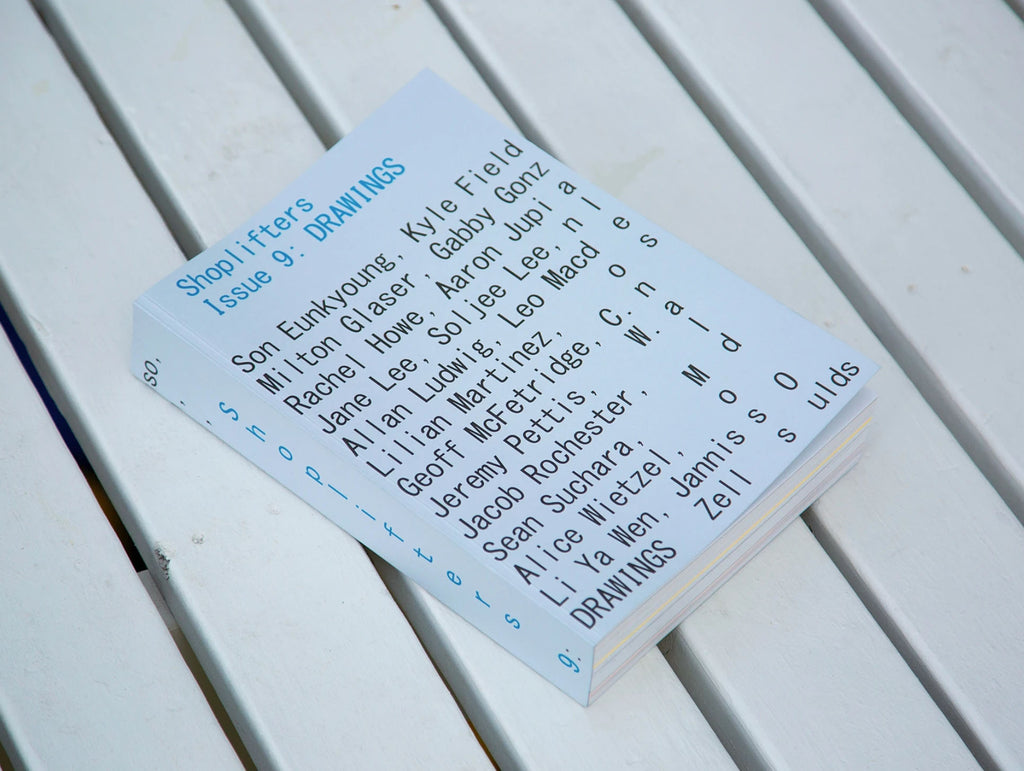 Shoplifters
Issue 9: DRAWINGS
Son Eunkyoung, Kyle Field
Milton Glaser, Gabby Gonz
Rachel Howe, Aaron Jupi a
Jane Lee, Soljee Lee, n l
Allan Ludwig, Leo Macd e
Lilian Martinez, o s
Geoff McFetridge, C. n
Jeremy Pettis, W. a
Jacob Rochester, l
Sean Suchara, M d
Alice Wietzel, o
Li Ya Wen, Jannis s O
DRAWINGS Zell s ulds
so, , Shoplifters 9: